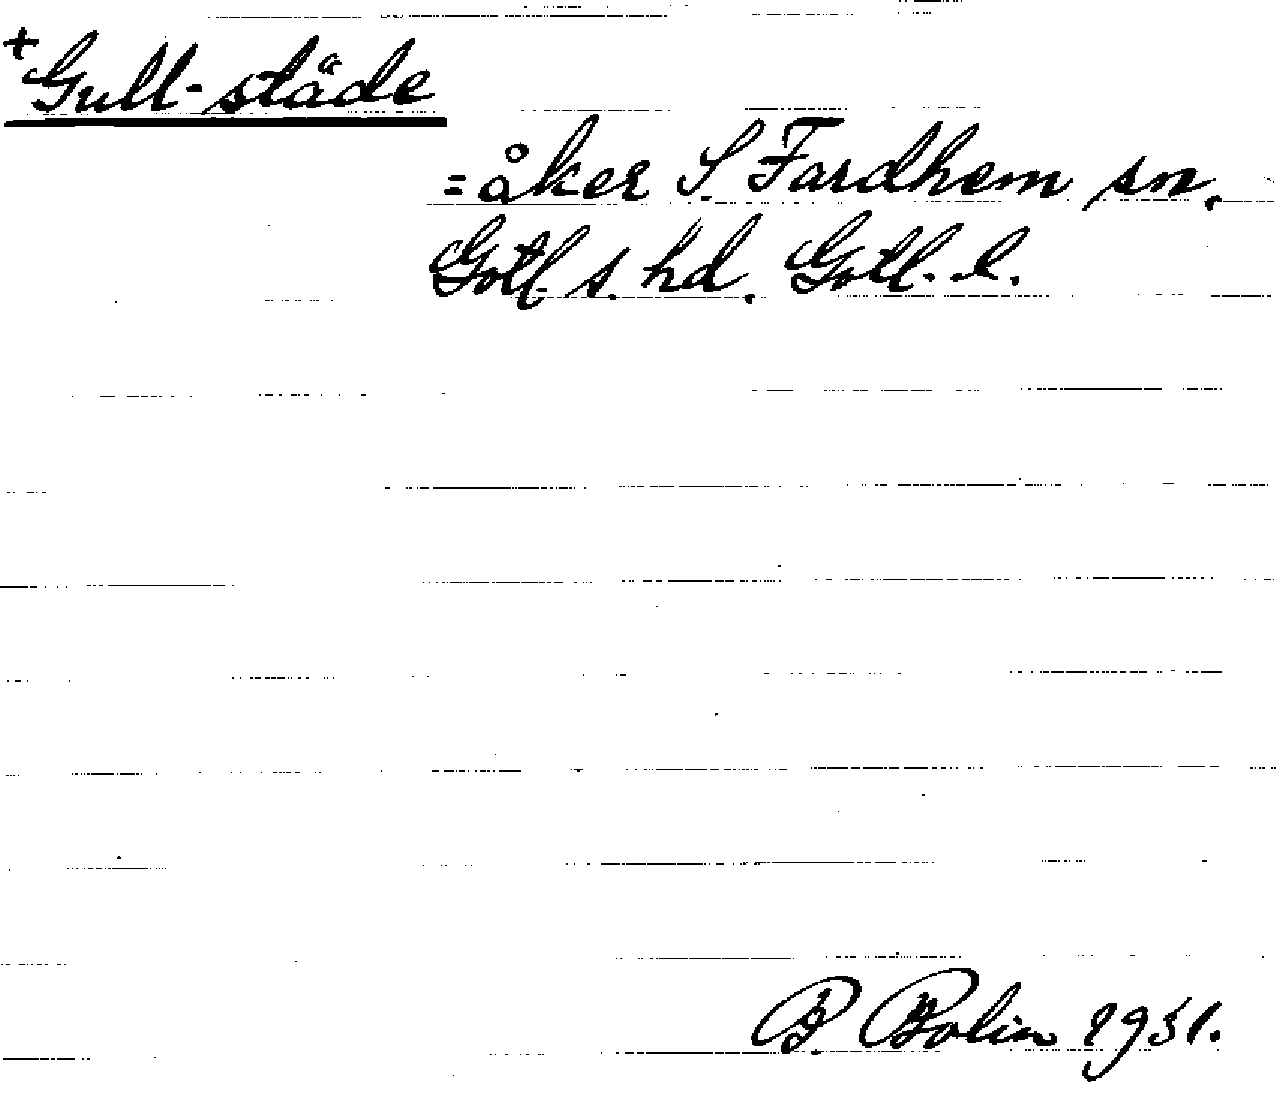 +Gull-städe
=åker S. Fardhem sn.
Gotl. s. hd. Gotl. l.
B. Bolin 1931.